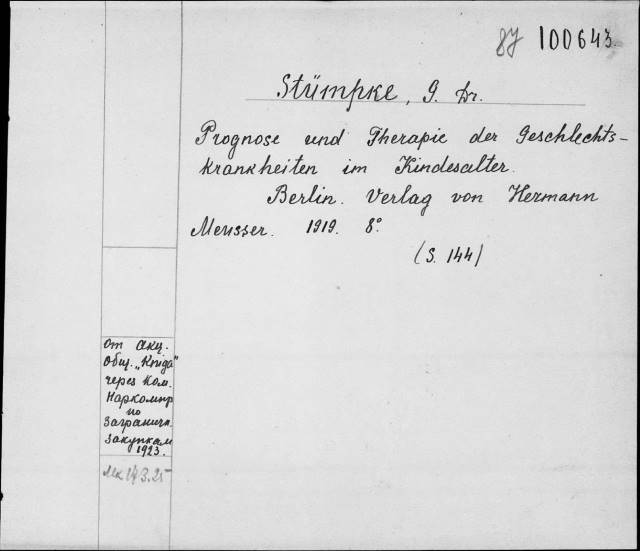 87 100643.
Stümpke, G. Dr.
Prognose und Therapie der Geschlechts-
krankheiten im Kindesalter.
Berlin. Verlag von Hermann
Meusser. 1919. 8°.
(S. 144)
От акц.
Общ. „Kniga"
через Ком.
Наркомпр
по
Загранич.
Закупкам
1923.